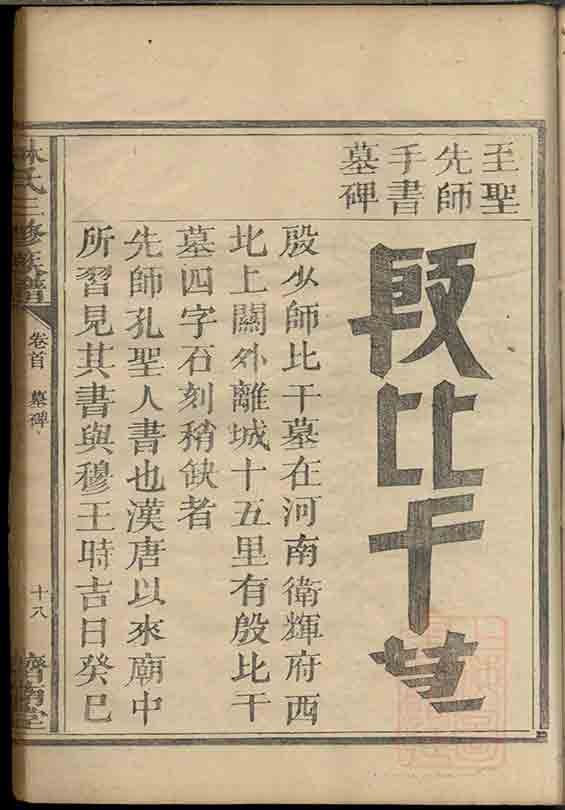 至聖
先師
手書
墓碑
殷比干墓
殷少師比干墓在河南衛輝府西
北上關外離城十五里有殷比干
墓四字石刻稍缺者
先師孔聖人書也漢唐以來廟中
所習見其書與穆王時吉日癸巳
林氏三修族譜
卷首 墓碑
十八
濟南堂